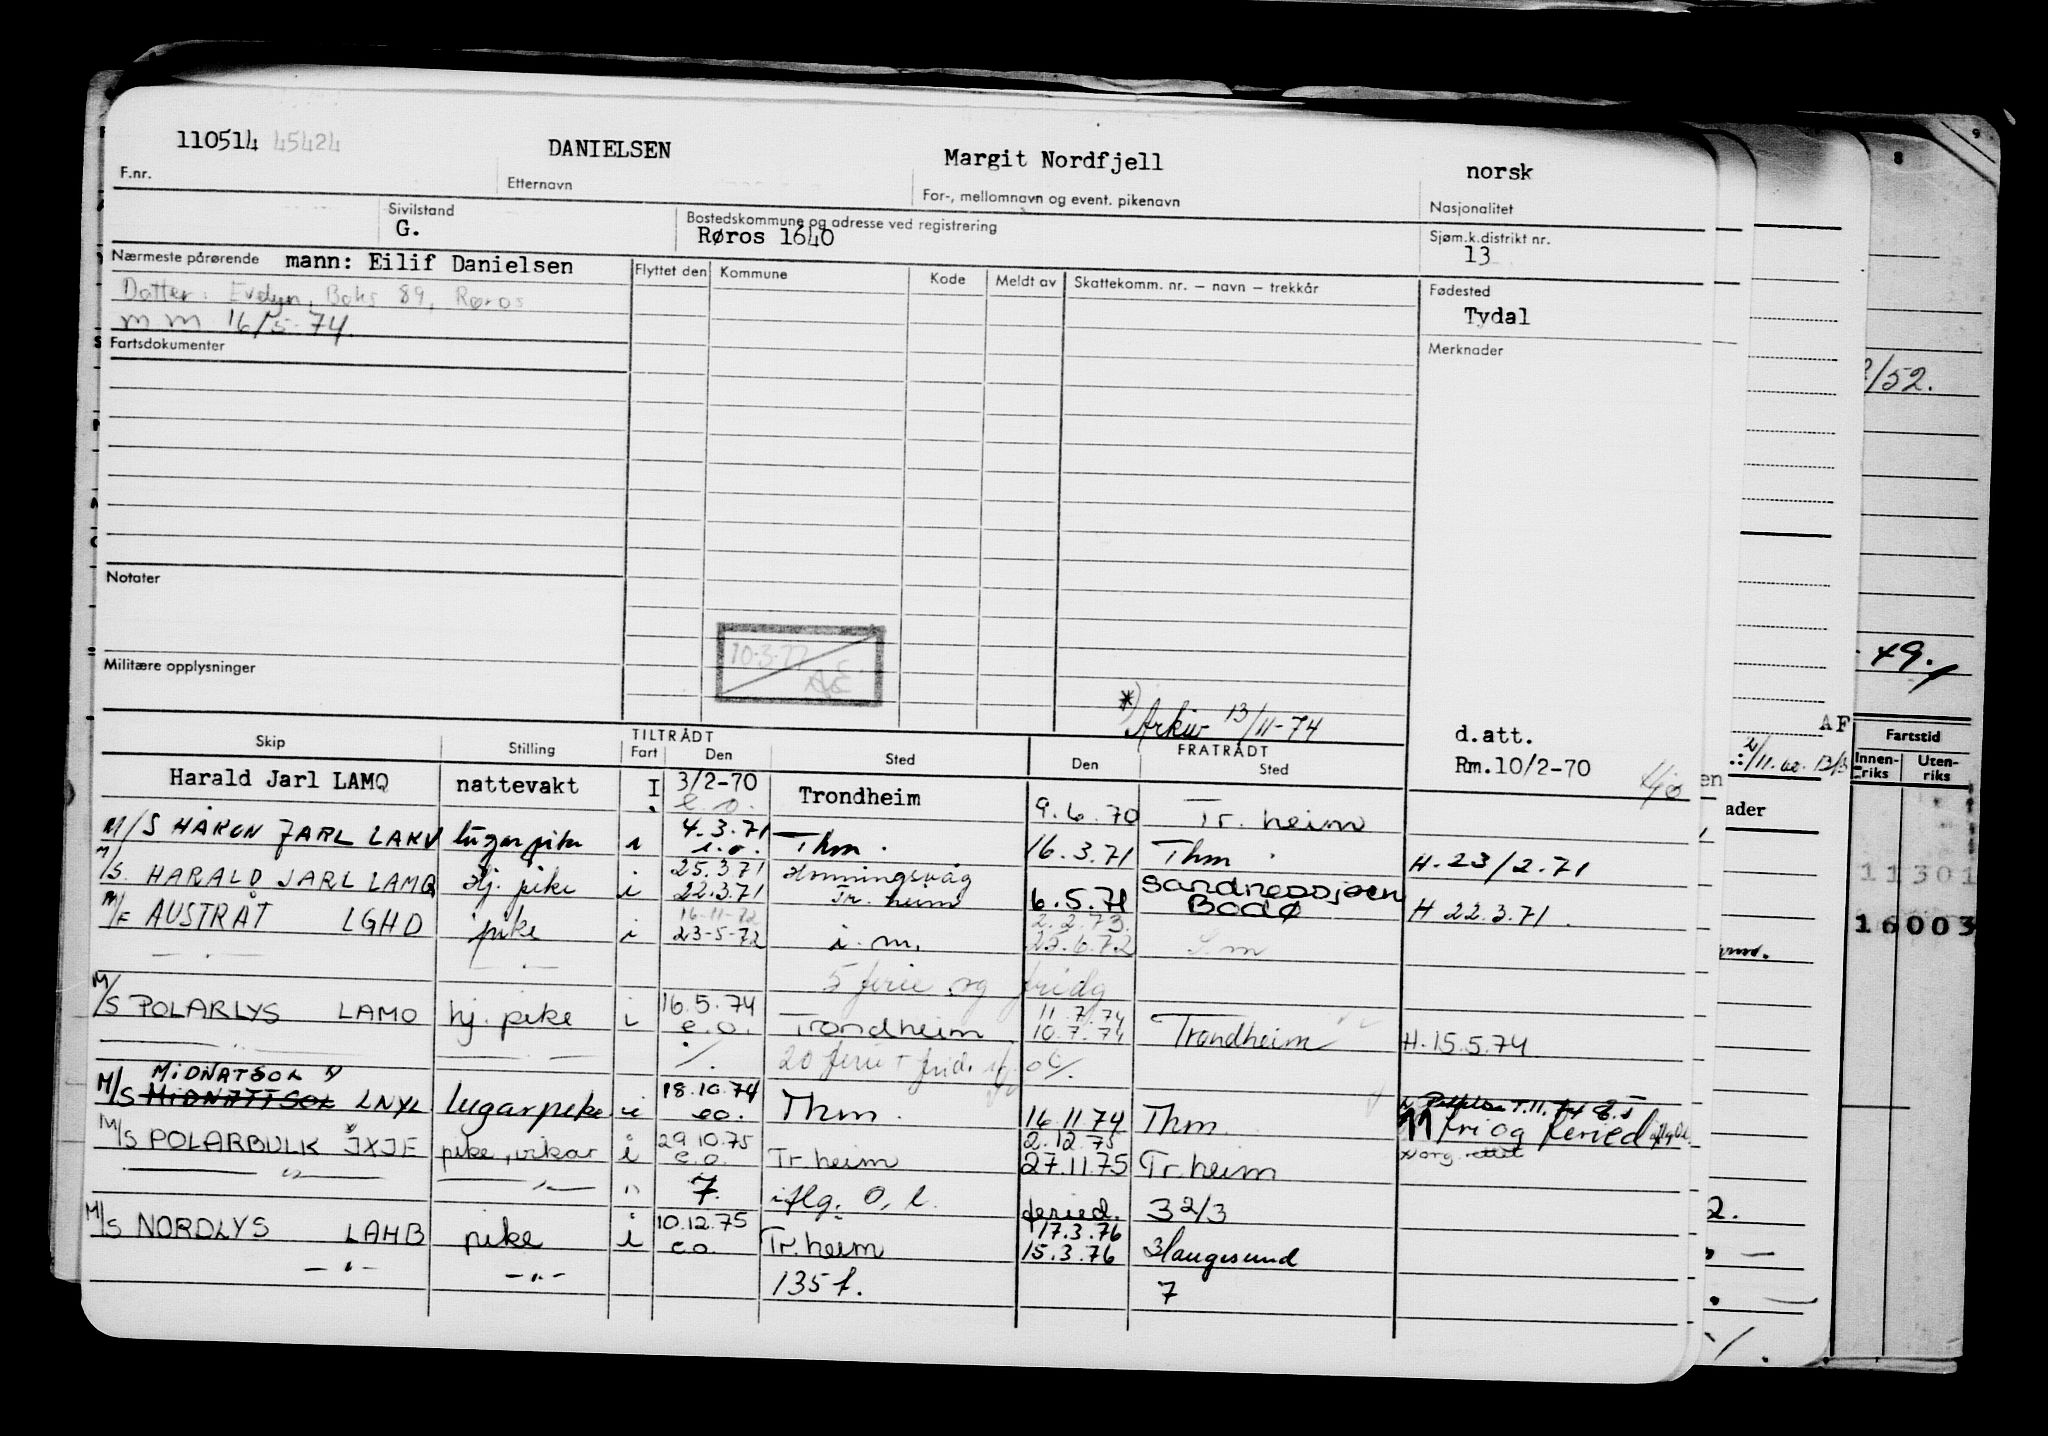 110514 45424 DANIELSEN Margit Nordfjell norsk
F.nr. Etternavn For-, mellomnavn og event. pikenavn Nasjonalitet
Sivilstand Bostedskommune og adresse ved registrering Sjøm.k.distrikt nr.
G. Røros 1640 13
Nærmeste pårørende mann: Eilif Danielsen Flyttet den Kommune Kode Meldt av Skattekomm. nr. – navn – trekkår Fødested
Datter: Evelyn, Boks 89, Røros Tydal
m m 16/5-74.
Fartsdokumenter Merknader
Notater
10.3.77
Militære opplysninger
*) Arkiv 13/11-74
TILTRÅDT FRATRÅDT d.att.
Skip Stilling Fart Den Sted Den Sted
Harald Jarl LAMQ nattevakt I 3/2-70 Trondheim 9.6.70 Tr. heim Rm.10/2-70
e.o.
M/S HÅKON JARL LAKV lugarpike i 4.3.71 Thm. 16.3.71 Thm. H.23/2.71
i.o.
M/S. HARALD JARL LAMQ hj. pike i 25.3.71 Honningsvåg 6.5.71 Sandnessjøen H 22.3.71.
22.3.71 Tr. heim Bodø
M/F AUSTRÅT LGHD pike i 16-11-72 2.2.73.
23-5-72 i.m. 22.6.72
5 ferie og fridg
M/S POLARLYS LAMO hj. pike i 16.5.74 Trondheim 11.7.74 Trondheim H.15.5.74
e.o. 10.7.74
20 ferie + frid.
MIDNATSOL
M/S MIDNATTSOL LNYL lugarpike i 18.10.74 Thm. 16.11 74 Thm.
eo. 11 fri og feried
M/S POLARBULK JXJE pike, vikar i 29.10.75 Tr.heim 2.12.75 Tr.heim
e.o. 27.11.75
— " — — " — " 7. iflg. O, l. feried. 3 2/3
M/S NORDLYS LAHB pike i 10.12.75 Tr.heim 17.3.76 Haugesund
e.o. 15.3.76
— " — — " — 135 f. 7
8
9
/52.
49.
AF
Fartstid
Innen-riks Uten-riks
ader
11301
16003
2.